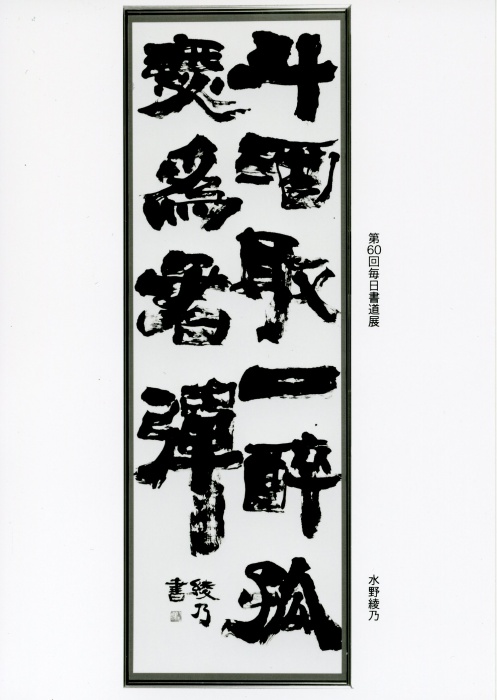 第60回毎日書道展
水野綾乃
斗酒取一酔孤
琴為君彈
綾乃
書